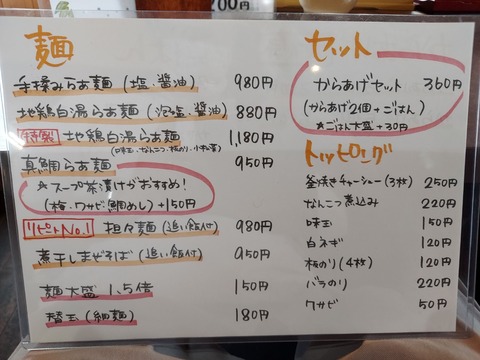 700円
麺
手揉みらぁ麺(塩.醤油) 980円
地鶏白湯らぁ麺(泡塩.醤油) 880円
特製 地鶏白湯らぁ麺 1,180円
真鯛らぁ麺 950円
☆スープ茶漬けがおすすめ!
(梅・ワサビ鯛めし)+150円
リピートNo.1 担々麺(追い飯付) 980円
煮干しまぜそば(追い飯付) 950円
麺大盛 1.5倍 150円
替玉(細麺) 180円
セット
からあげセット 360円
(からあげ2個+ごはん)
☆ごはん大盛+30円
トッピング
釜焼きチャーシュー(3枚) 250円
なんこつ煮込み 220円
味玉 150円
白ネギ 120円
板のり(4枚) 120円
バラのり 220円
ワサビ 50円